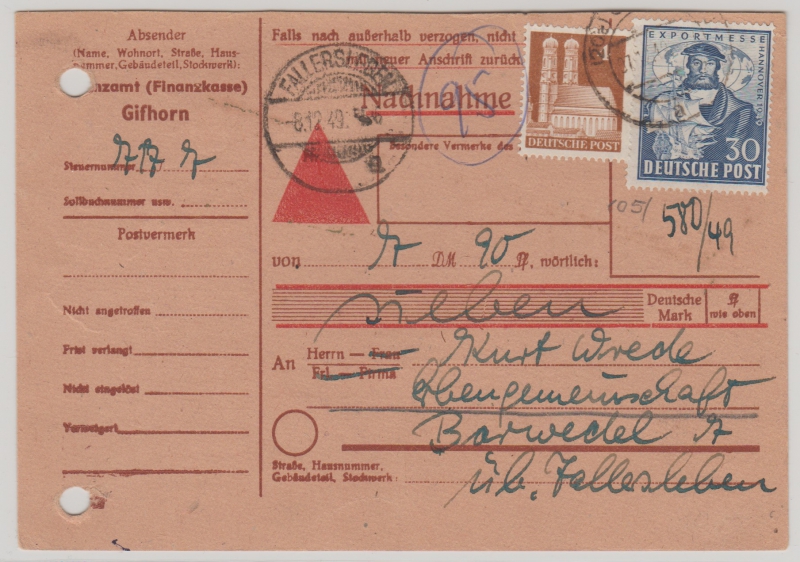 Absender
(Name, Wohnort, Straße, Haus-
nummer, Gebäudeteil, Stockwerk):
nzamt (Finanzkasse)
Gifhorn
Steuernummer
Sollbuchnummer usw.
Postvermerk
Nicht angetroffen
Frist verlangt
Nicht eingelöst
Verweigert
Falls nach außerhalb verzogen, nicht
neuer Anschrift zurück
Nachnahme
Besondere Vermerke des
FALLERSLEBEN
8.12.49.
a
95
DEUTSCHE POST
EXPORTMESSE HANNOVER 1949
30
DEUTSCHE POST
105/
580/49
von 7 DM 90 Pf, wörtlich:
sieben
Deutsche Mark
Pf wie oben
An
Herrn — Frau
Frl — Firma
Kurt Wrede
Erbengemeinschaft
Barwedel 7
üb. Fallersleben
Straße, Hausnummer,
Gebäudeteil, Stockwerk: